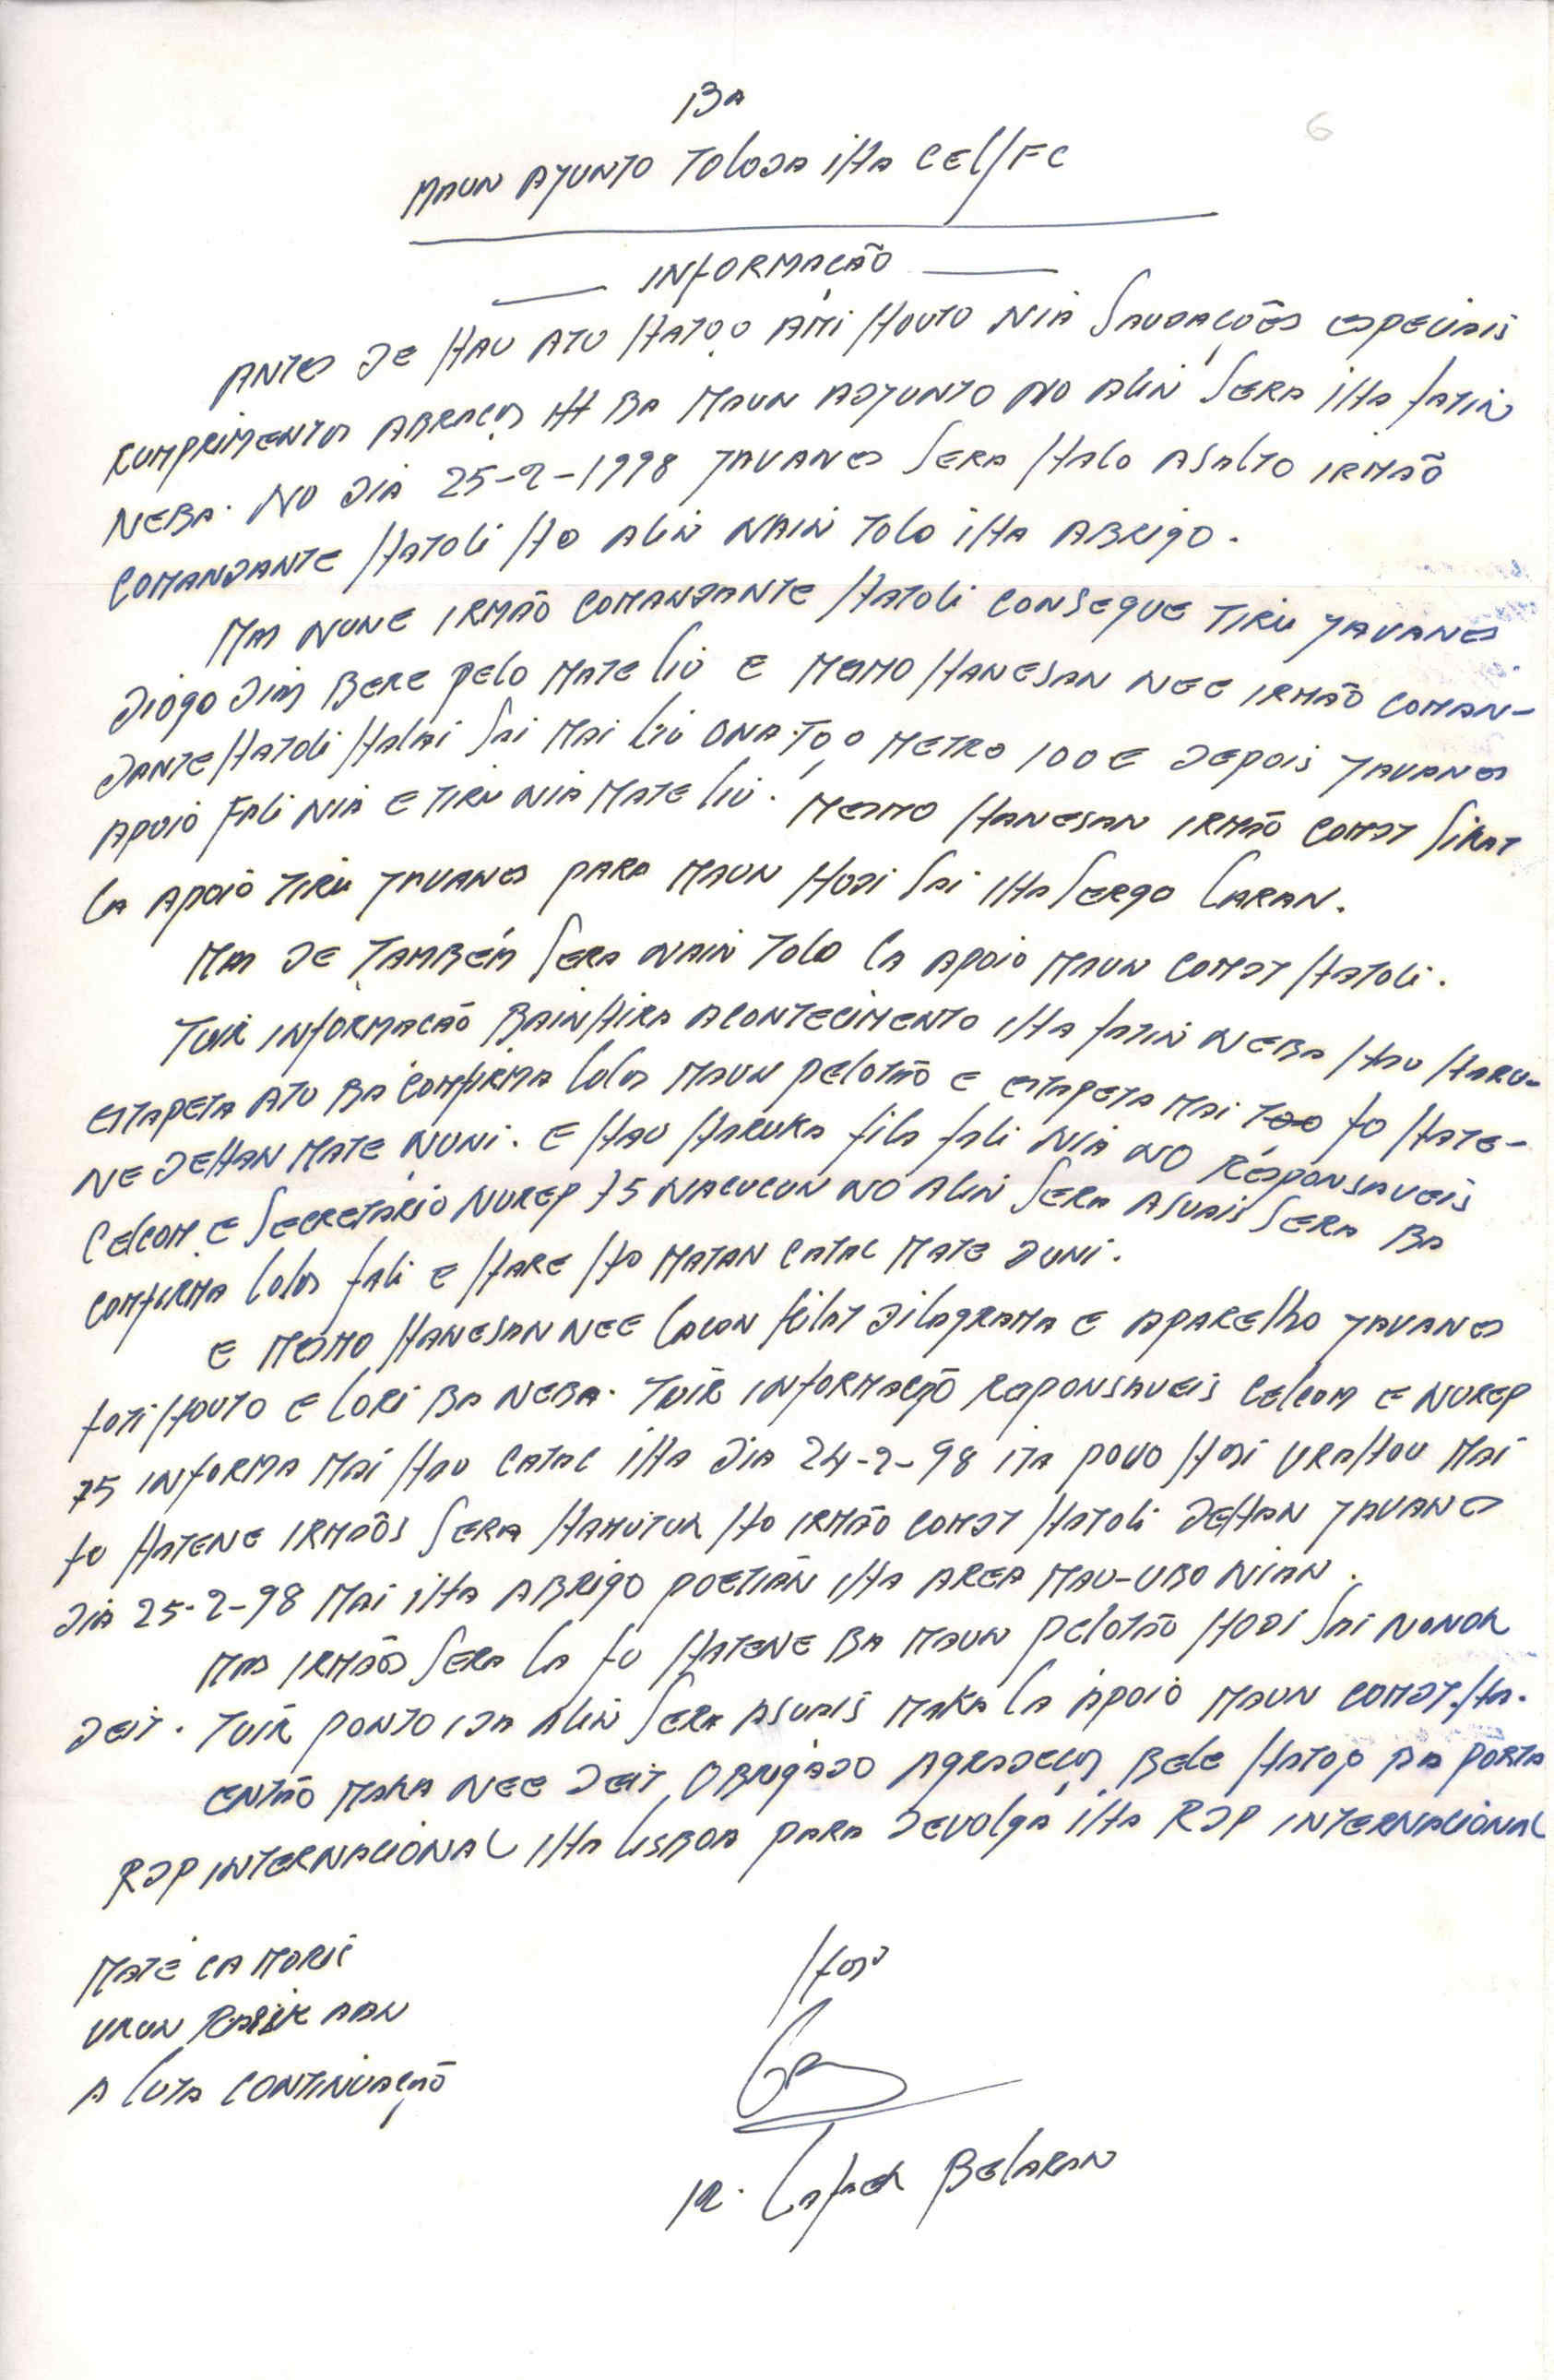 BA
MAUN AJUNTO TOLODA IHA CEL/FC
INFORMAÇÃO
ANTES DE HAU ATU HATOO AMI HOUTO NIA SAUDAÇÕES ESPECIAIS
CUMPRIMENTOS ABRAÇOS BA MAUN ADJUNTO NO ALIN SERA IHA FATIN
NEBA. NO DIA 25-2-1998 JAVANES SERA HALO ASALTO IRMÃO
COMANDANTE HATOLI HO ALIN NAIN TOLO IHA ABRIGO.
MAS NUNE IRMÃO COMANDANTE HATOLI CONSEGUE TIRU JAVANES
DIOGO DIAS BERE PELO MATE LIU E MESMO HANESAN NEE IRMÃO COMAN-
DANTE HATOLI HALAI SAI MAI LIU ONA TOO METRO 100 E DEPOIS JAVANES
APOIO FALI NIA E TIRU NIA MATE LIU. MESMO HANESAN IRMÃO COMDT SIRAT
LA APOIO TIRU JAVANES PARA MAUN HODI SAI IHA SERGO LARAN.
MAS DE TAMBÉM SERA NAIN TOLO LA APOIO MAUN COMDT HATOLI.
TUIR INFORMACÃO BAINHIRA ACONTECIMENTO IHA FATIN NEBA HAU HARU-
ESTAPETA ATU BA COMFIRMA LOLOS MAUN PELOTÃO E ESTAPETA MAI TOO FO HATE-
NE DEHAN MATE NUNI. E HAU HARUKA FILA FALI NIA NO RESPONSAVEIS
CELCOM E SECRETÁRIO NUREP 75 NACUCUN NO ALIN SERA ASUAIS SERA BA
COMFIRMA LOLOS FALI E HARE HO MATAN CATAC MATE DUNI.
E MESMO HANESAN NEE LACON KILAT DILAGRAMA E APARELHO JAVANES
FOTI HOUTO E LORI BA NEBA. TUIR INFORMAÇÃO RESPONSAVEIS CELCOM E NUREP
75 INFORMA MAI HAU CATAC IHA DIA 24-2-98 ITA POVO HOSI URAHOU MAI
FO HATENE IRMÃOS SERA HAMUTUK HO IRMÃO COMDT HATOLI DEHAN JAVANES
DIA 25-2-98 MAI IHA ABRIGO POETIÁN IHA AREA MAU-UBO NIAN.
MAS IRMÃOS SERA LA FO HATENE BA MAUN PELOTÃO HODI SAI NONOK
DEIT. TUIR PONTO IDA ALIN SERA ASUAIS MAKA LA APOIO MAUN COMDT. HA.
ENTÃO MAKA NEE DEIT, OBRIGADO AGRADEÇOS BELE HATOO BA PORTA
RDP INTERNACIONAL IHA LISBOA PARA DEVOLGA IHA RDP INTERNACIONAL
MATE CA MORIS
UKUN RASIK AAN
A LUTA CONTINUAÇÃO
HOSI
LAFAEK BELARAN